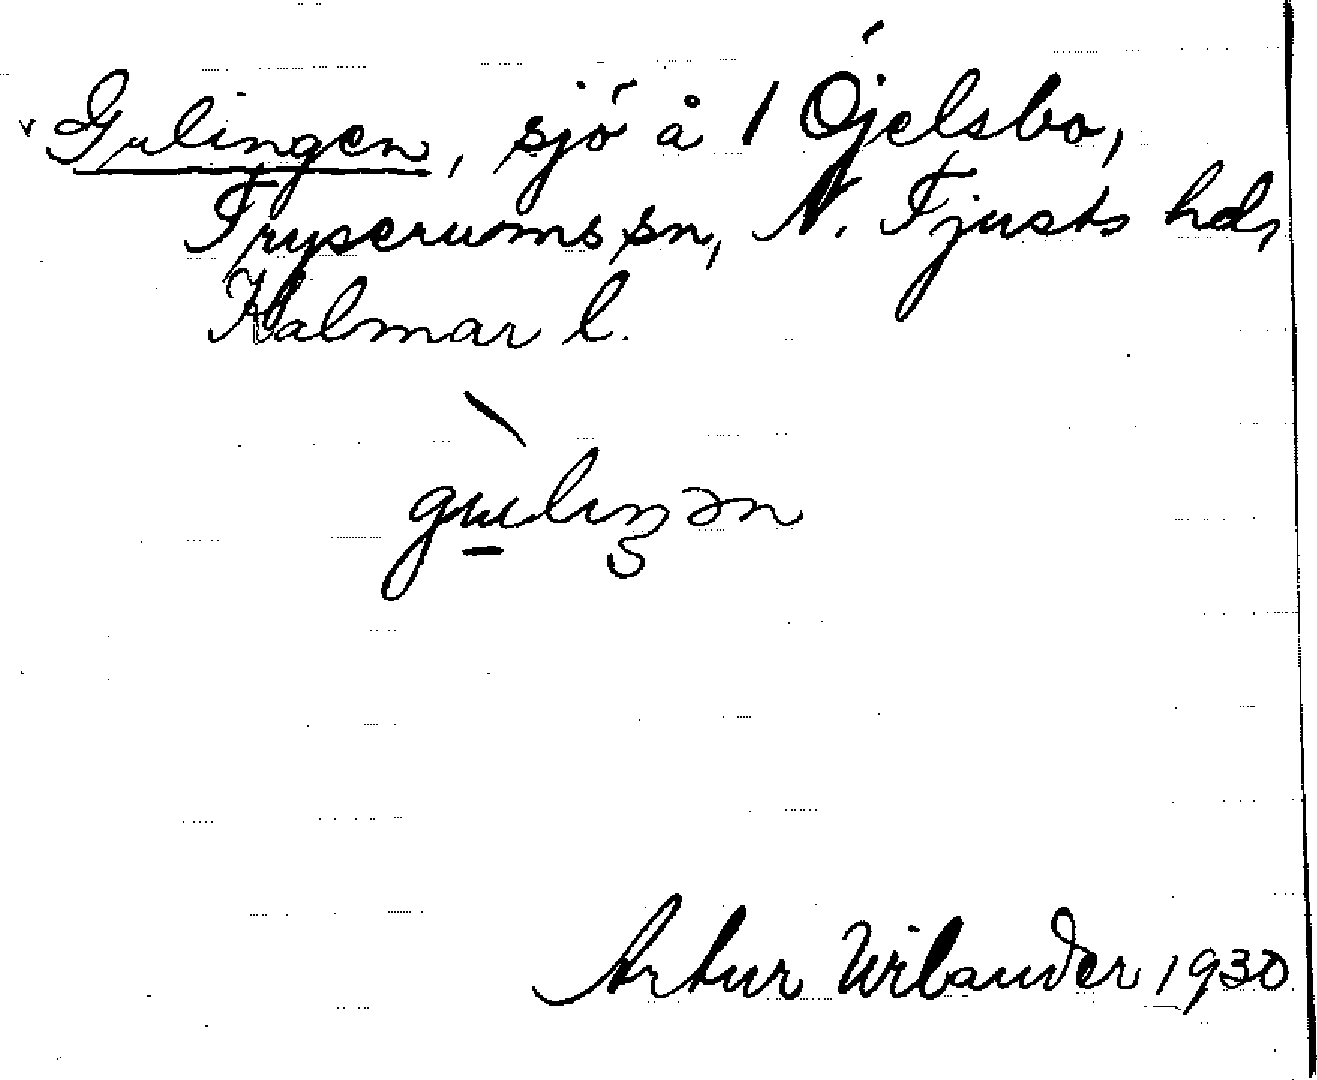 v Gulingen, sjö å 1 Öjelsbo,
Tryserums sn, N. Tjusts hd,
Kalmar l.
Artur Wilander 1930